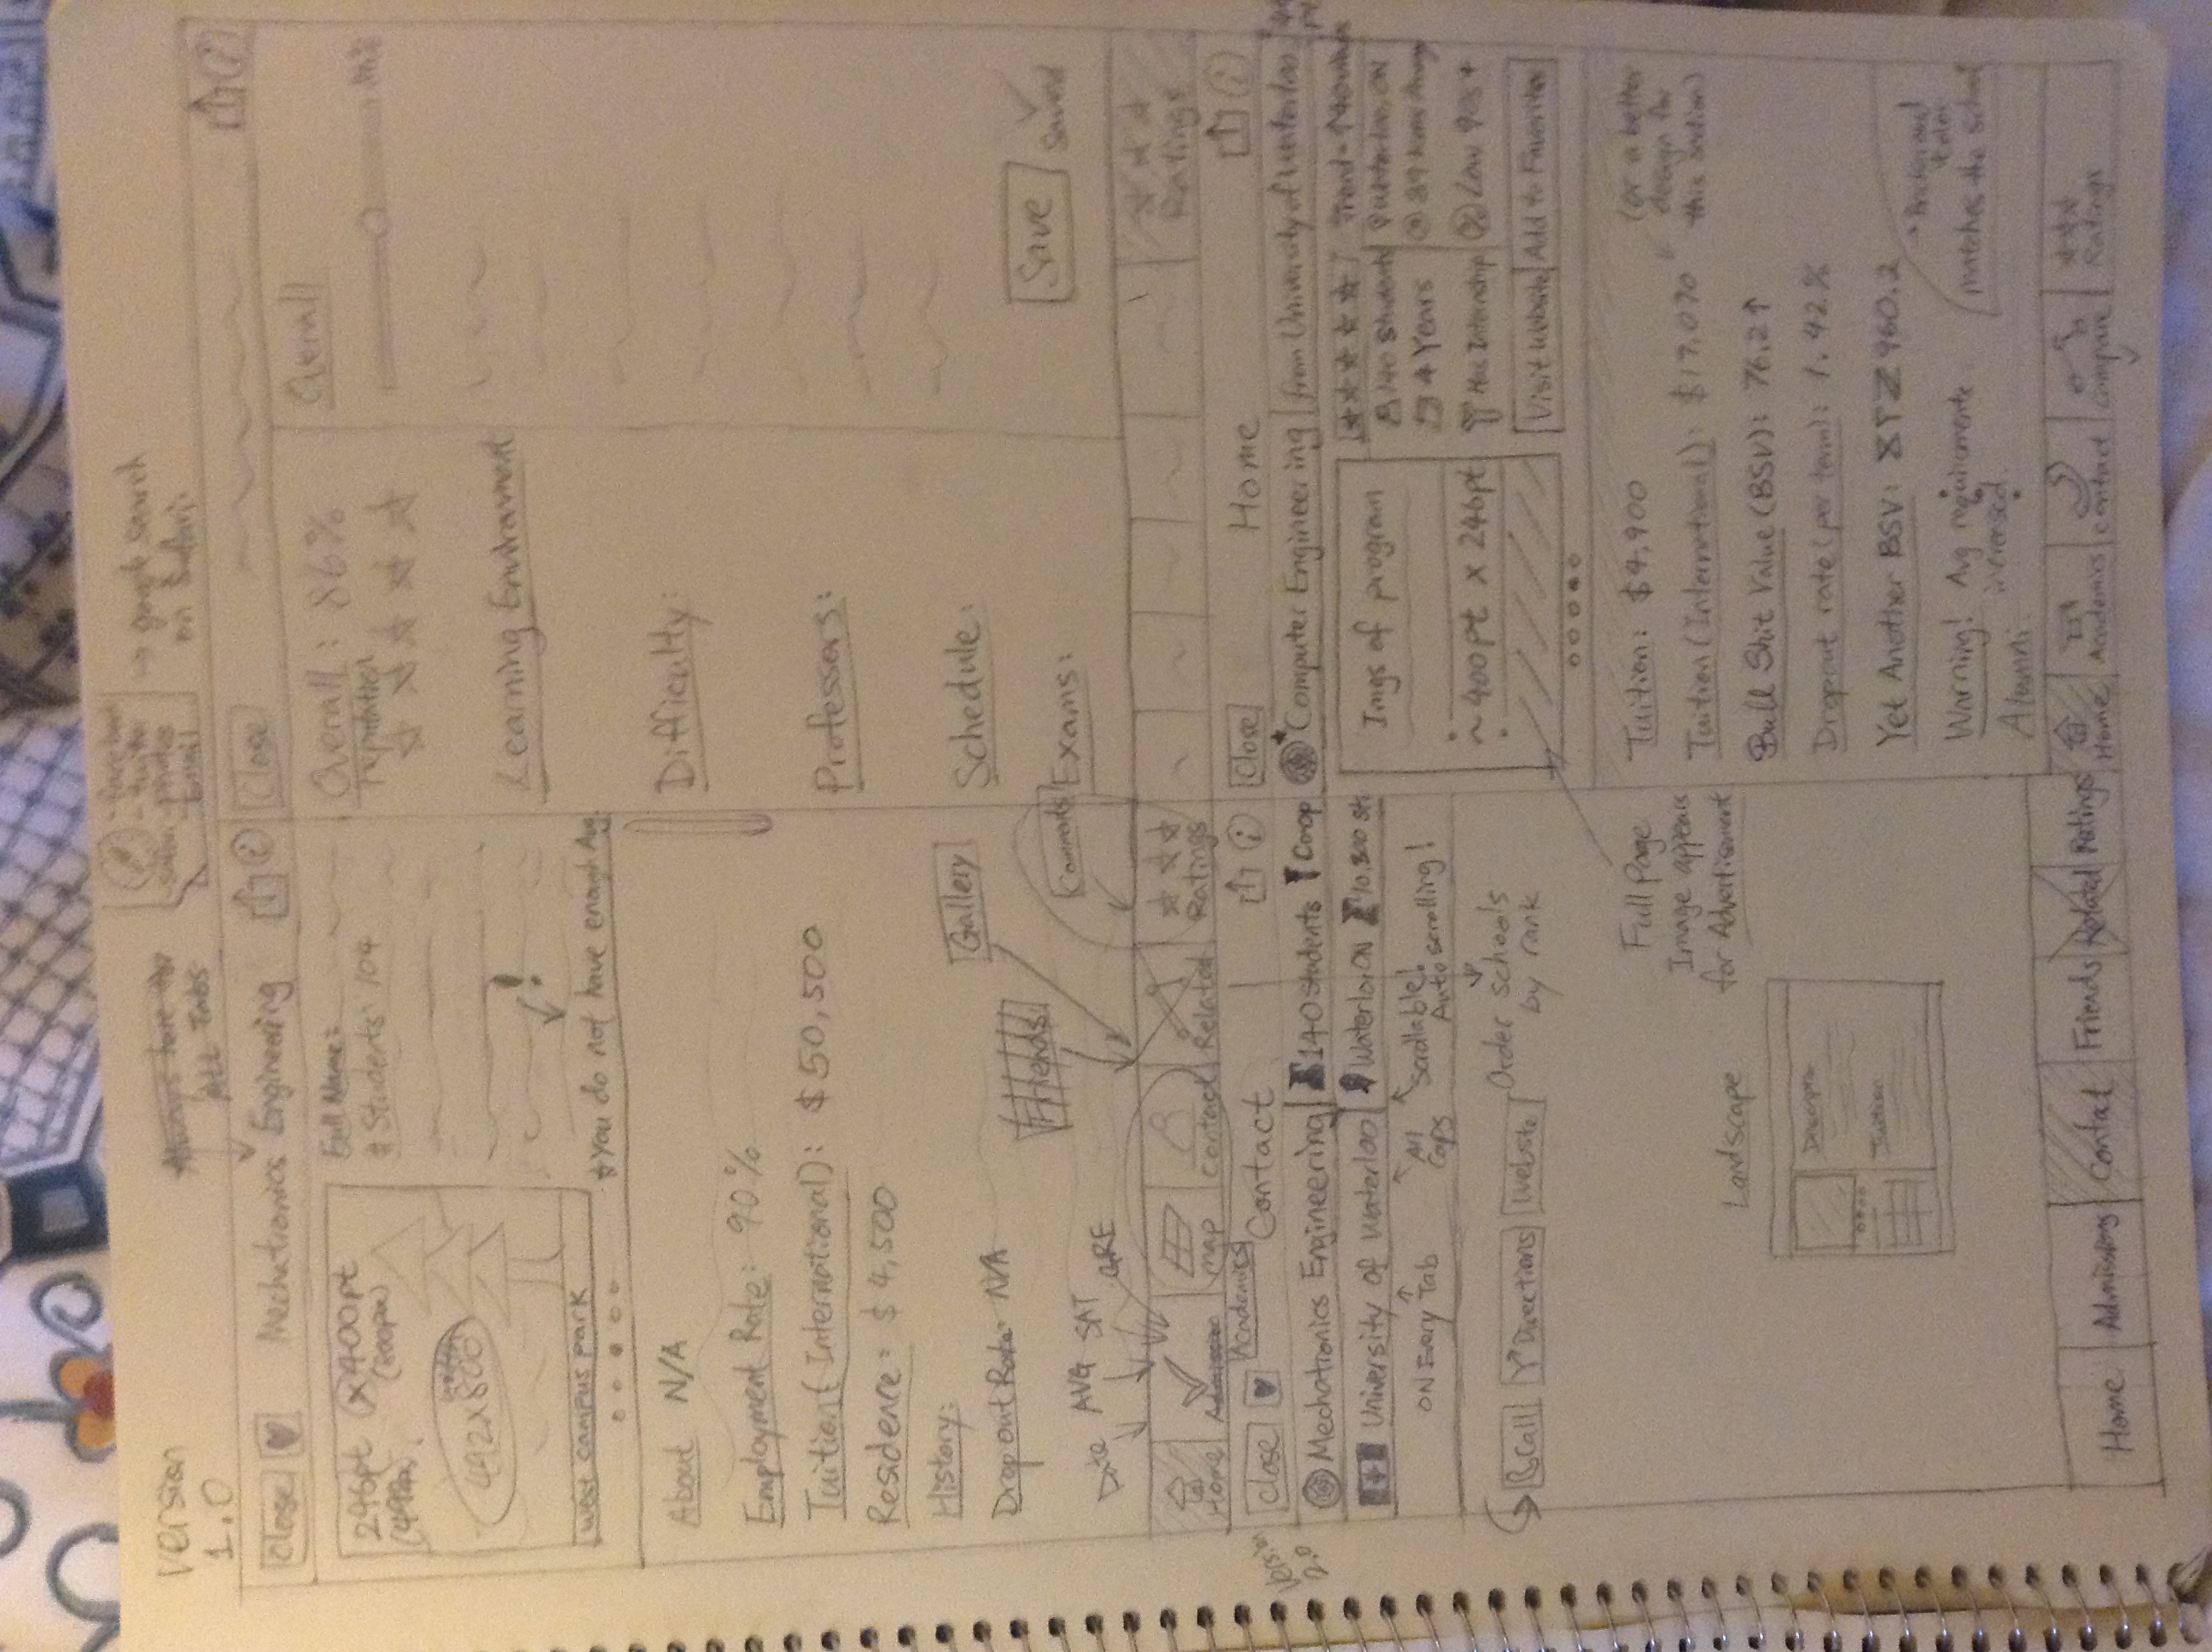 Version
1.0
Always here for
ALL Tabs
- facebook
- twitter
- safari - photos
Email
→ google search
on Safari.
Close
Mechatronics Engineering
i
246pt x 400pt
(492px) (800px)
492x800
west campus park
Full Name:
# Students: 104
!
*You do not have enough Avg.
About N/A
Employment Rate: 90%
Tuition (International): $50,500
Residence: $4,500
History:
Drop out Rate: N/A
Gallery
Friends
Comments
Date AVG SAT GRE
Home
Admission
Academics
map
Contact
Related
Ratings
Close
i
Overall: 86%
reputation
Learning Enviroment
Difficulty:
Professors:
Schedule:
Exams:
Overall
Save
Saved
Ratings
Version
2.0
Close
Contact
i
Mechatronics Engineering
140 Students
Co-op
University of Waterloo
Waterloo, ON
10,300 st
ON Every Tab
All
Caps
Scrollable!
Auto scrolling!
Call
Directions
Website
Order schools
by rank
Full Page
Image appears
for Advertisement
Landscape
Tuition
Home
Admissions
Contact
Friends
Related
Ratings
Close
Home
i
Computer Engineering
from University of Waterloo
Imgs of program
~400pt x 246pt
140 Students
Waterloo, ON
4 Years
89 kms Away
Has Internship
Low 90s +
Visit Website
Add to Favorites
Tuition: $4,900
Tuition (International): $17,070
(or a better
design for
this section)
Bull Shit Value (BSV): 76.2↑
Dropout rate (per term): 1.42%
Yet Another BSV: XYZ 960.2
Background
color
matches the school
Warning! Avg requirements
increased.
Alumni:
Home
Academics
Contact
Compare
Ratings